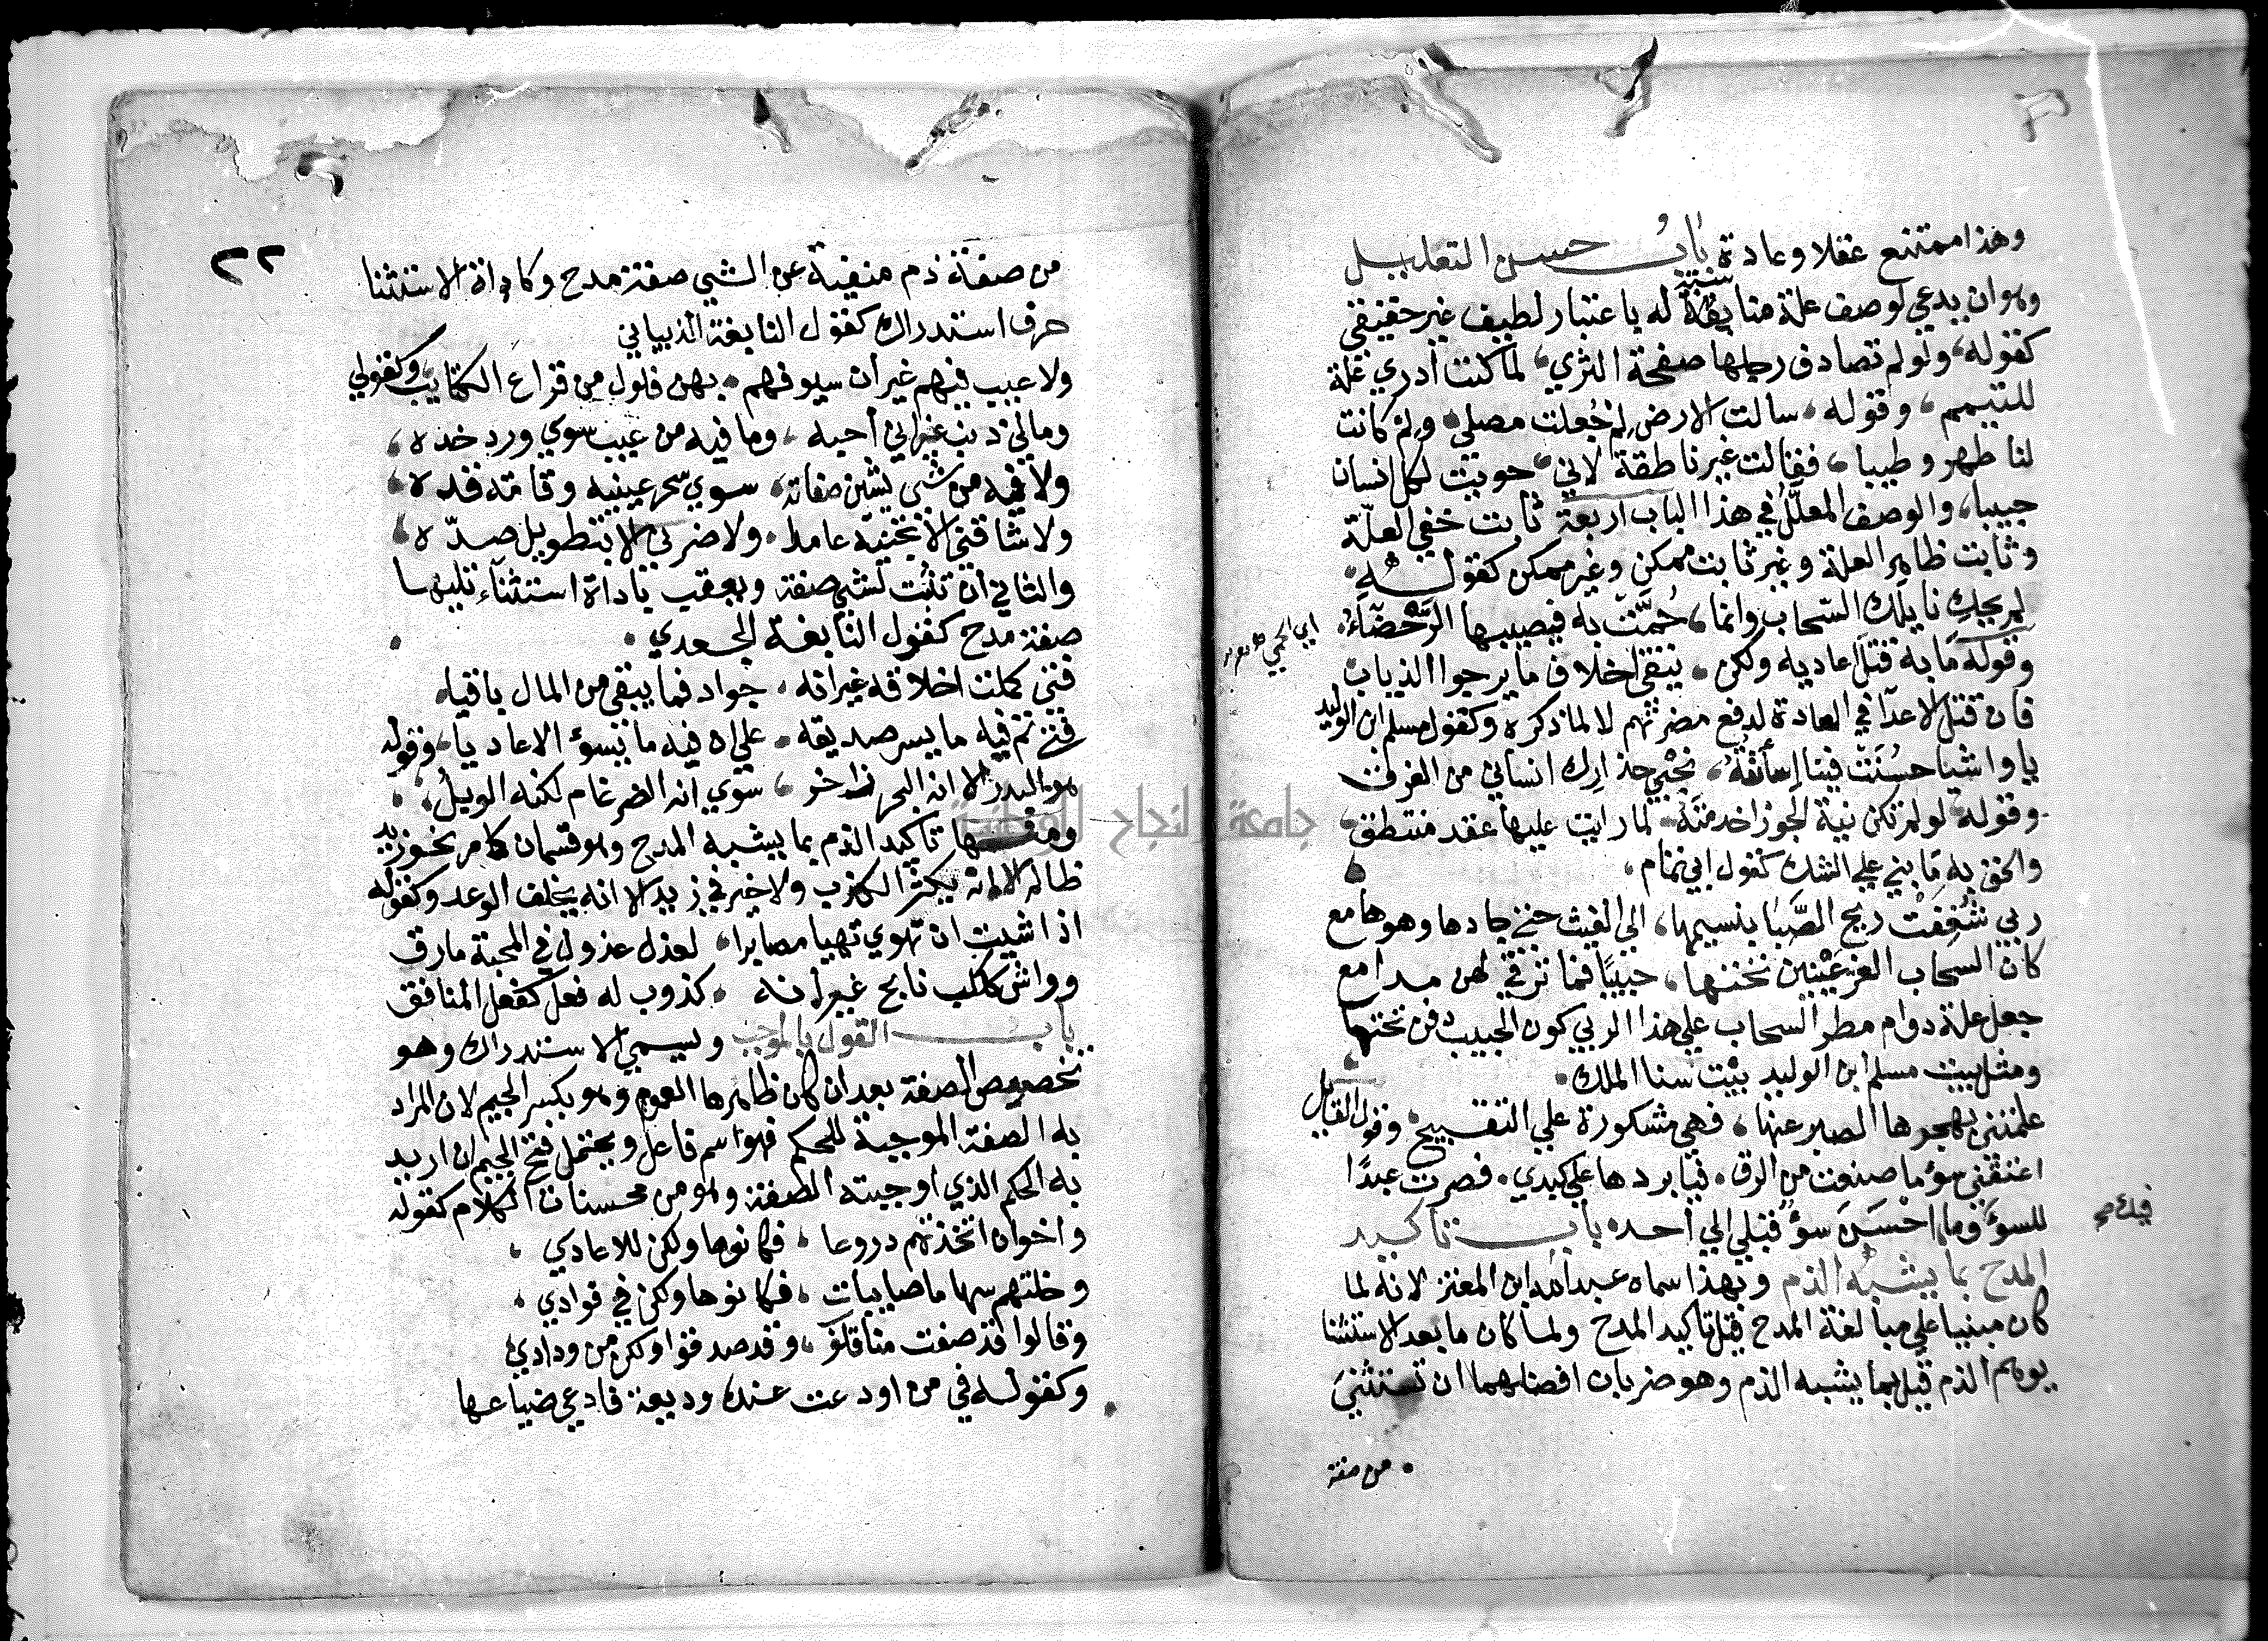 وهذا ممتنع عقلا وعادة باب حسن التعليل
وهو ان يدعي لوصف علة مناسبة له باعتبار لطيف غير حقيقي
كقوله، ولو لم تصادف رجلها صفحة الثري، لما كنت أدري علة
للتيمم، وقوله، سالت الارض لم جُعلت مصلي، ولم كانت
لنا طهر وطيبا، فقالت غير ناطقة لاني، حويت لكل انسان
حبيبا، والوصف المعلَّل في هذا الباب اربعة ثابت خفي العلّة
وثابت ظاهر العلة وغير ثابت ممكن وغير ممكن كقوله،
لم يحكِ نايلَك السّحاب وانما، حُمّت به فصبيبها الرَّحضَآءُ،
اي الحمي
وقوله ما به قتل اعاديه ولكن، يتقي اخلاف ما يرجوا الذياب
فان قتل الاعدآ في العادة لدفع مضرتهم لا لما ذكره وكقول مسلم ابن الوليد
يا واشيا حسُنَت فينا إساءته، نجّي حذارك انساني من الغرق
وقوله، لو لم تكن نية الجوزا خدمته، لما رايت عليها عقد منتطق،
والحق به ما بني علي الشك كقول ابي تمام،
ربي شَغَفت ريح الصَّبا بنسيمها، الي الغيث حتي جادها وهو هامع
كان السحاب الغر غيّبن تحتها، حبيبًا فما ترقي لهن مدامع
جعل علة دوام مطر السحاب علي هذا الربي كون الحبيب دفن تحتها
ومثل بيت مسلم ابن الوليد بيْت سنا الملك،
علمتني بهجرها الصبر عنها، فهي مشكورة علي التقبيح، وقول القايل
اعتقني سؤ ما صنعت من الرق، فيا بردها علي كبدي، فصرت عبدًا
للسؤ وما احسن سؤ قبلي الي أحد، باب تأكيد
المدح بما يشبه الذم وبهذا سماه عبدالله ابن المعتز لانه لما
كان مبنيا علي مبالغة المدح قيل تأكيد المدح ولما كان ما بعد الاستثنا
يوهم الذم قيل بما يشبه الذم وهو ضربان افضلهما ان تستثني
من صفة
٢٢
من صفة ذم منفية عن الشي صفة مدح وكاداة الاستثنا
حرف استدراك كقول النابغة الذبياني
ولا عيب فيهم غير أن سيوفهم، بهن فلول من قراع الكتايب، وكقولي
ومالي ذنب غير اني أحبه، وما فيه من عيب سوي ورد خده،
ولا فيه من شي يشين صفاته، سوي سحر عينيه وقامته قده،
ولا شاقني الا تجنيه عامدا، ولا ضرني الا بتطويل صدّه،
والثاني أن تثبت لشي صفة ويعقب باداة استثنآء تليها
صفة مدح كقول النابغة الجعدي،
فتي كملت اخلاقه غير انه، جواد فما يبقي من المال باقيا،
فتي تم فيه ما يسر صديقه، علي ان فيه ما يسؤ الاعاديا، وقوله
هو البدر الا انه البحر زاخر، سوي انه الضرغام لكنه الوبلُ،
ومنها تأكيد الذم بما يشبه المدح وهو قسمان كما مر نحو زيد
ظالم الا انه يكثر الكذب ولا خير في زيد الا انه يخلف الوعد وكقوله
اذا شيت ان تهوي تهيا مصابرا، لعذل عذول في المحبة مارق
وواش ككلب نابح غير أنه، كذوب له فعل كفعل المنافق
باب القول بالموجب ويسمي الاستدراك وهو
تخصيص الصفة بعد ان كان ظاهرها العموم وهو بكسر الجيم لان المراد
به الصفة الموجبة للحكم فهو اسم فاعل ويحتمل فتح الجيم ان اريد
به الحكم الذي اوجبته الصفة وهو من محسنات الكلام كقوله
واخوان اتخذتهم دروعا، فكانوها ولكن للاعادي،
وخلتهم سهاما صايبات، فكانوها ولكن في فوادي،
وقالوا قد صفت منا قلوب، وقد صدقوا ولكن من ودادي
وكقوله في من اودعت عنده وديعة فادعي ضياعها
جامعة النجاح الوطنية